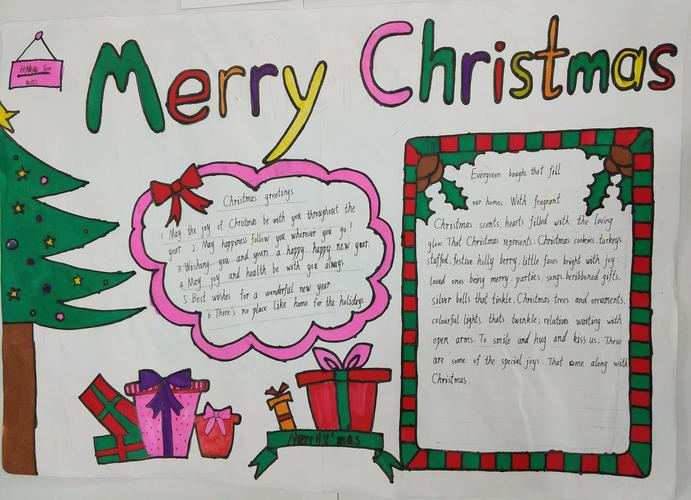 Merry Christmas
Christmas greetings
1. May the joy of Christmas be with you throughout the
year. 2. May happiness follow you wherever you go!
3. Wishing you and yours a happy happy new year.
4. May joy and health be with you always.
5. Best wishes for a wonderful new year.
6. There's no place like home for the holidays.
Evergreen boughs that fill
our homes. With fragrant
Christmas scents, hearts filled with the loving
glow. That Christmas represents. Christmas cookies, turkeys
stuffed, festive holly berry, little faces bright with joy.
loved ones being merry. parties, songs, beribboned gifts.
silver bells that tinkle, Christmas trees and ornaments,
colourful lights thats twinkle; relatives waiting with
open arms. To smile and hug and kiss us, These
are some of the special joys. That come along with
Christmas.